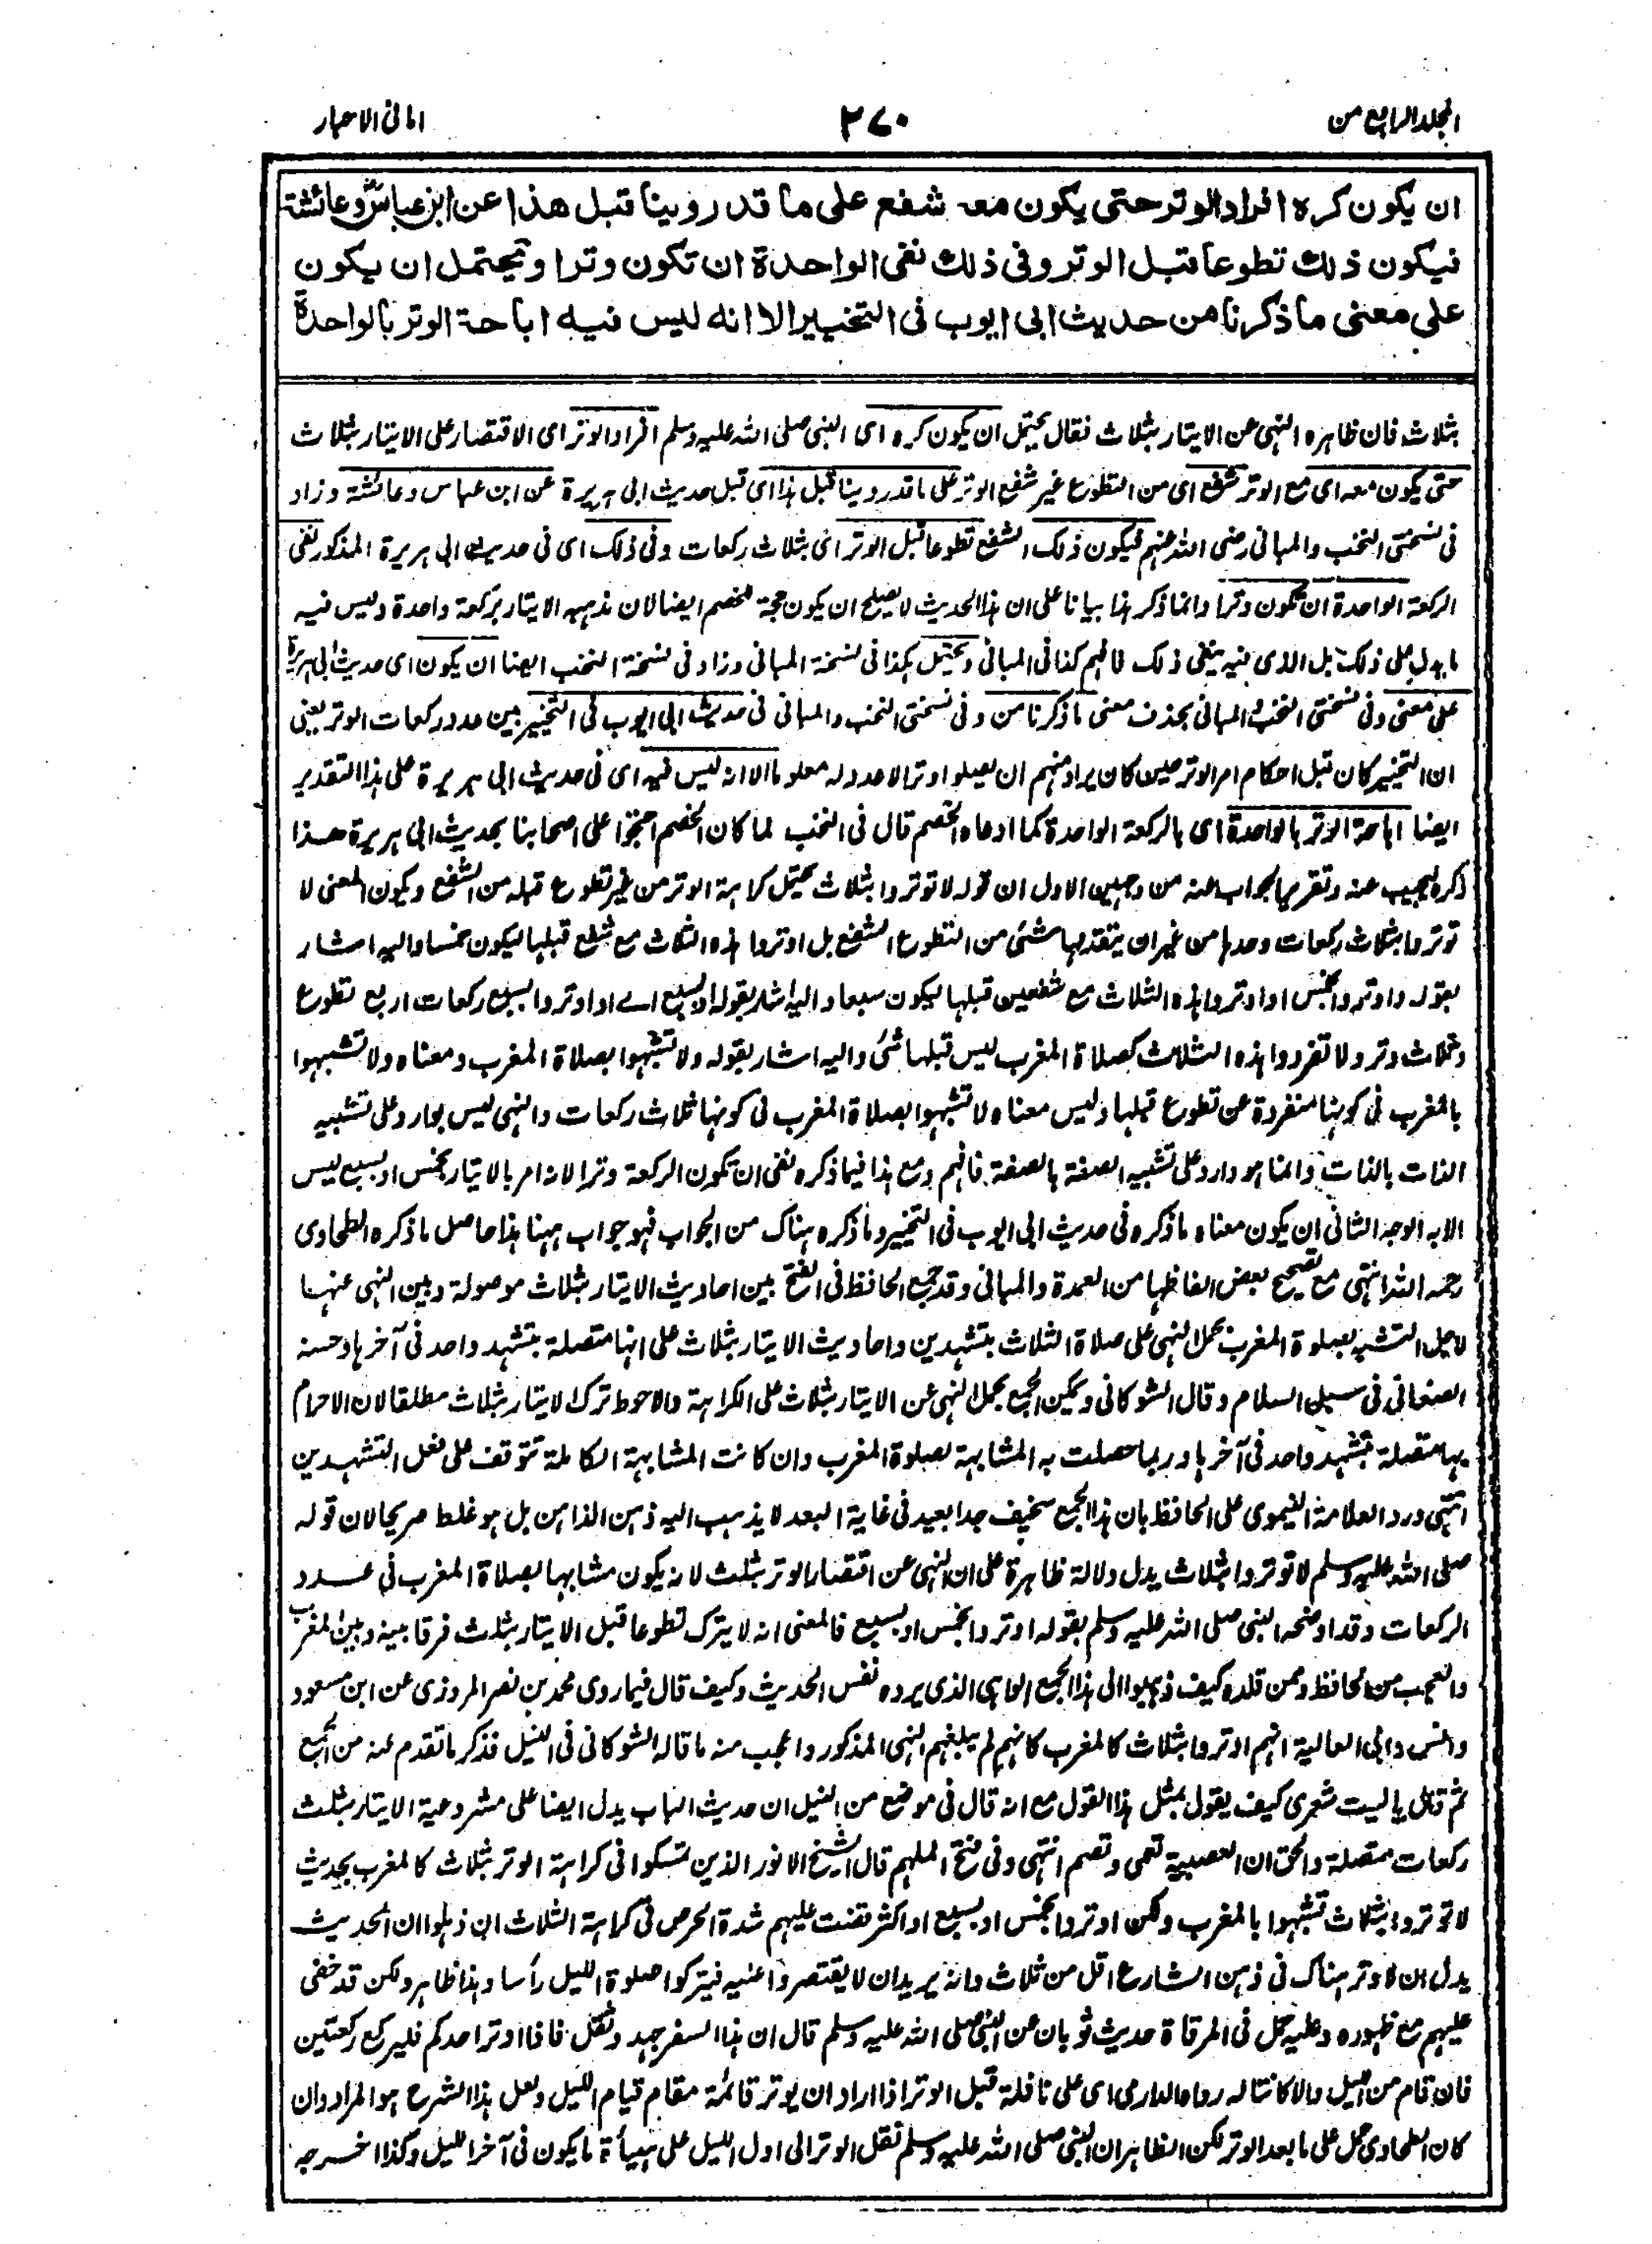 المجلد الرابع من
٢٧٠
امانى الاحبار
ان يكون كره افراد الوتر حتى يكون معه شفع على ما قد روينا قبل هذا عن ابن عباسؓ وعائشة
فيكون ذلك تطوعا قبل الوتر وفى ذلك نفى الواحدة ان تكون وترا ويحتمل ان يكون
على معنى ما ذكرنا من حديث ابى ايوب فى التخيير الا انه ليس فيه اباحة الوتر بالواحدة
بثلاث فان ظاهره النهى عن الايتار بثلاث فقال يحتمل ان يكون كره اى النبى صلى الله عليه وسلم افراد الوتر اى الاقتصار على الايتار بثلاث
حتى يكون معه اى مع الوتر شفع اى من التطوع غير شفع الوتر على ما قد روينا قبل هذا اى قبل حديث ابى هريرة عن ابن عباس وعائشة وزاد
فى نسختى النخب والمبانى رضى الله عنهم فيكون ذلك الشفع تطوعا قبل الوتر اى بثلاث ركعات وفى ذلك اى فى حديث ابى هريرة المذكور نفى
الركعة الواحدة ان تكون وترا وانما ذكر هذا بيانا على ان هذا الحديث لا يصلح ان يكون حجة للخصم ايضا لان مذهبه الايتار بركعة واحدة وليس فيه
ما يدل على ذلك بل الذى فيه ينفى ذلك فافهم كذا فى المبانى ويحتمل هكذا فى نسخة المبانى وزاد فى نسخة النخب ايضا ان يكون اى حديث ابى هريرة
على معنى وفى نسختى النخب والمبانى بحذف معنى ما ذكرنا من وفى نسختى النخب والمبانى فى حديث ابى ايوب فى التخيير بين عدد ركعات الوتر يعنى
ان التخيير كان قبل احكام امر الوتر حين كان يراد منهم ان يصلوا وترا لا عدد له معلوما الا انه ليس فيه اى فى حديث ابى هريرة على هذا التقدير
ايضا اباحة الوتر بالواحدة اى بالركعة الواحدة كما ادعاه الخصم قال فى النخب لما كان الخصم احتجوا على اصحابنا بحديث ابى هريرة هذا
ذكره ليجيب عنه وتقرير الجواب عنه من وجهين الاول ان قوله لا توتروا بثلاث يحتمل كراهة الوتر من غير تطوع قبله من الشفع ويكون المعنى لا
توتروا بثلاث ركعات وحدها من غير ان يتقدمها شئى من التطوع الشفع بل اوتروا هذه الثلاث مع شفع قبلها ليكون خمسا واليه اشار
بقوله واوتروا بخمس او اوتروا هذه الثلاث مع شفعين قبلها ليكون سبعا واليه اشار بقوله او بسبع اى او اوتروا بسبع ركعات اربع تطوع
وثلاث وتر ولا تفردوا هذه الثلاث كصلاة المغرب ليس قبلها شئ واليه اشار بقوله ولا تشبهوا بصلاة المغرب ومعناه ولا تشبهوا
بالمغرب فى كونها منفردة عن تطوع قبلها وليس معناه لا تشبهوا بصلاة المغرب فى كونها ثلاث ركعات والنهى ليس بوارد على تشبيه
الذات بالذات وانما هو وارد على تشبيه الصفة بالصفة فافهم ومع هذا فيما ذكره نفى ان تكون الركعة وترا لانه امر بالايتار بخمس او بسبع ليس
الا به الوجه الثانى ان يكون معناه ما ذكره فى حديث ابى ايوب فى التخيير وما ذكره هناك من الجواب فهو جواب ههنا هذا حاصل ما ذكره الطحاوى
رحمه الله انتهى مع تصحيح بعض الفاظها من العمدة والمبانى وقد جمع الحافظ فى الفتح بين احاديث الايتار بثلاث موصولة وبين النهى عنها
لاجل التشبه بصلوة المغرب بحمل النهى على صلاة الثلاث بتشهدين واحاديث الايتار بثلاث على انها متصلة بتشهد واحد فى آخرها وحسنه
الصنعانى فى سبل السلام وقال الشوكانى ويمكن الجمع بحمل النهى عن الايتار بثلاث على الكراهة والاحوط ترك الايتار بثلاث مطلقا لان الاحرام
بها متصلة بتشهد واحد فى آخرها وربما حصلت به المشابهة لصلوة المغرب وان كانت المشابهة الكاملة تتوقف على فعل التشهدين
انتهى ورد العلامة النيموى على الحافظ بان هذا الجمع سخيف جدا بعيد فى غاية البعد لا يذهب اليه ذهن الذاهن بل هو غلط صريحا لان قوله
صلى الله عليه وسلم لا توتروا بثلاث يدل دلالة ظاهرة على ان النهى عن اقتصار الوتر بثلث لانه يكون مشابها بصلاة المغرب فى عدد
الركعات وقد اوضحه النبى صلى الله عليه وسلم بقوله اوتروا بخمس او بسبع فالمعنى انه لا يترك تطوعا قبل الايتار بثلث فرقا بينه وبين المغرب
والعجب من الحافظ وممن قلده كيف ذهبوا الى هذا الجمع الواهى الذى يرده نفس الحديث وكيف قال فيما روى محمد بن نصر المروزى عن ابن مسعود
وانس وابى العالية انهم اوتروا بثلاث كالمغرب كانهم لم يبلغهم النهى المذكور واعجب منه ما قاله الشوكانى فى النيل فذكر ما تقدم عنه من الجمع
ثم قال يا ليت شعرى كيف يقول بمثل هذا القول مع انه قال فى موضع من النيل ان حديث الباب يدل ايضا على مشروعية الايتار بثلث
ركعات متصلة والحق ان العصبية تعمى وتصم انتهى وفى فتح الملهم قال الشيخ الانور الذين تمسكوا فى كراهة الوتر بثلاث كالمغرب بحديث
لا توتروا بثلاث تشبهوا بالمغرب ولكن اوتروا بخمس او بسبع او اكثر فقنت عليهم شدة الحرص فى كراهة الثلاث ان ذهلوا ان الحديث
يدل ان لا وتر هناك فى ذهن الشارع اقل من ثلاث وانه يريد ان لا يقتصروا عليه فيتركوا صلوة الليل رأسا وهذا ظاهر ولكن قد خفى
عليهم مع ظهوره وعليه حمل فى المرقاة حديث ثوبان عن النبى صلى الله عليه وسلم قال ان هذا السفر جهد وثقل فاذا اوتر احدكم فليركع ركعتين
فان قام من الليل والا كانتا له رواه الدارمى اى على نافلة قبل الوتر اذا اراد ان يوتر قائمة مقام قيام الليل ولعل هذا الشرح هو المراد وان
كان الطحاوى حمل على ما بعد الوتر لكن الظاهر ان النبى صلى الله عليه وسلم نقل الوتر الى اول الليل على هيأة ما يكون فى آخر الليل وكذا اخرجه